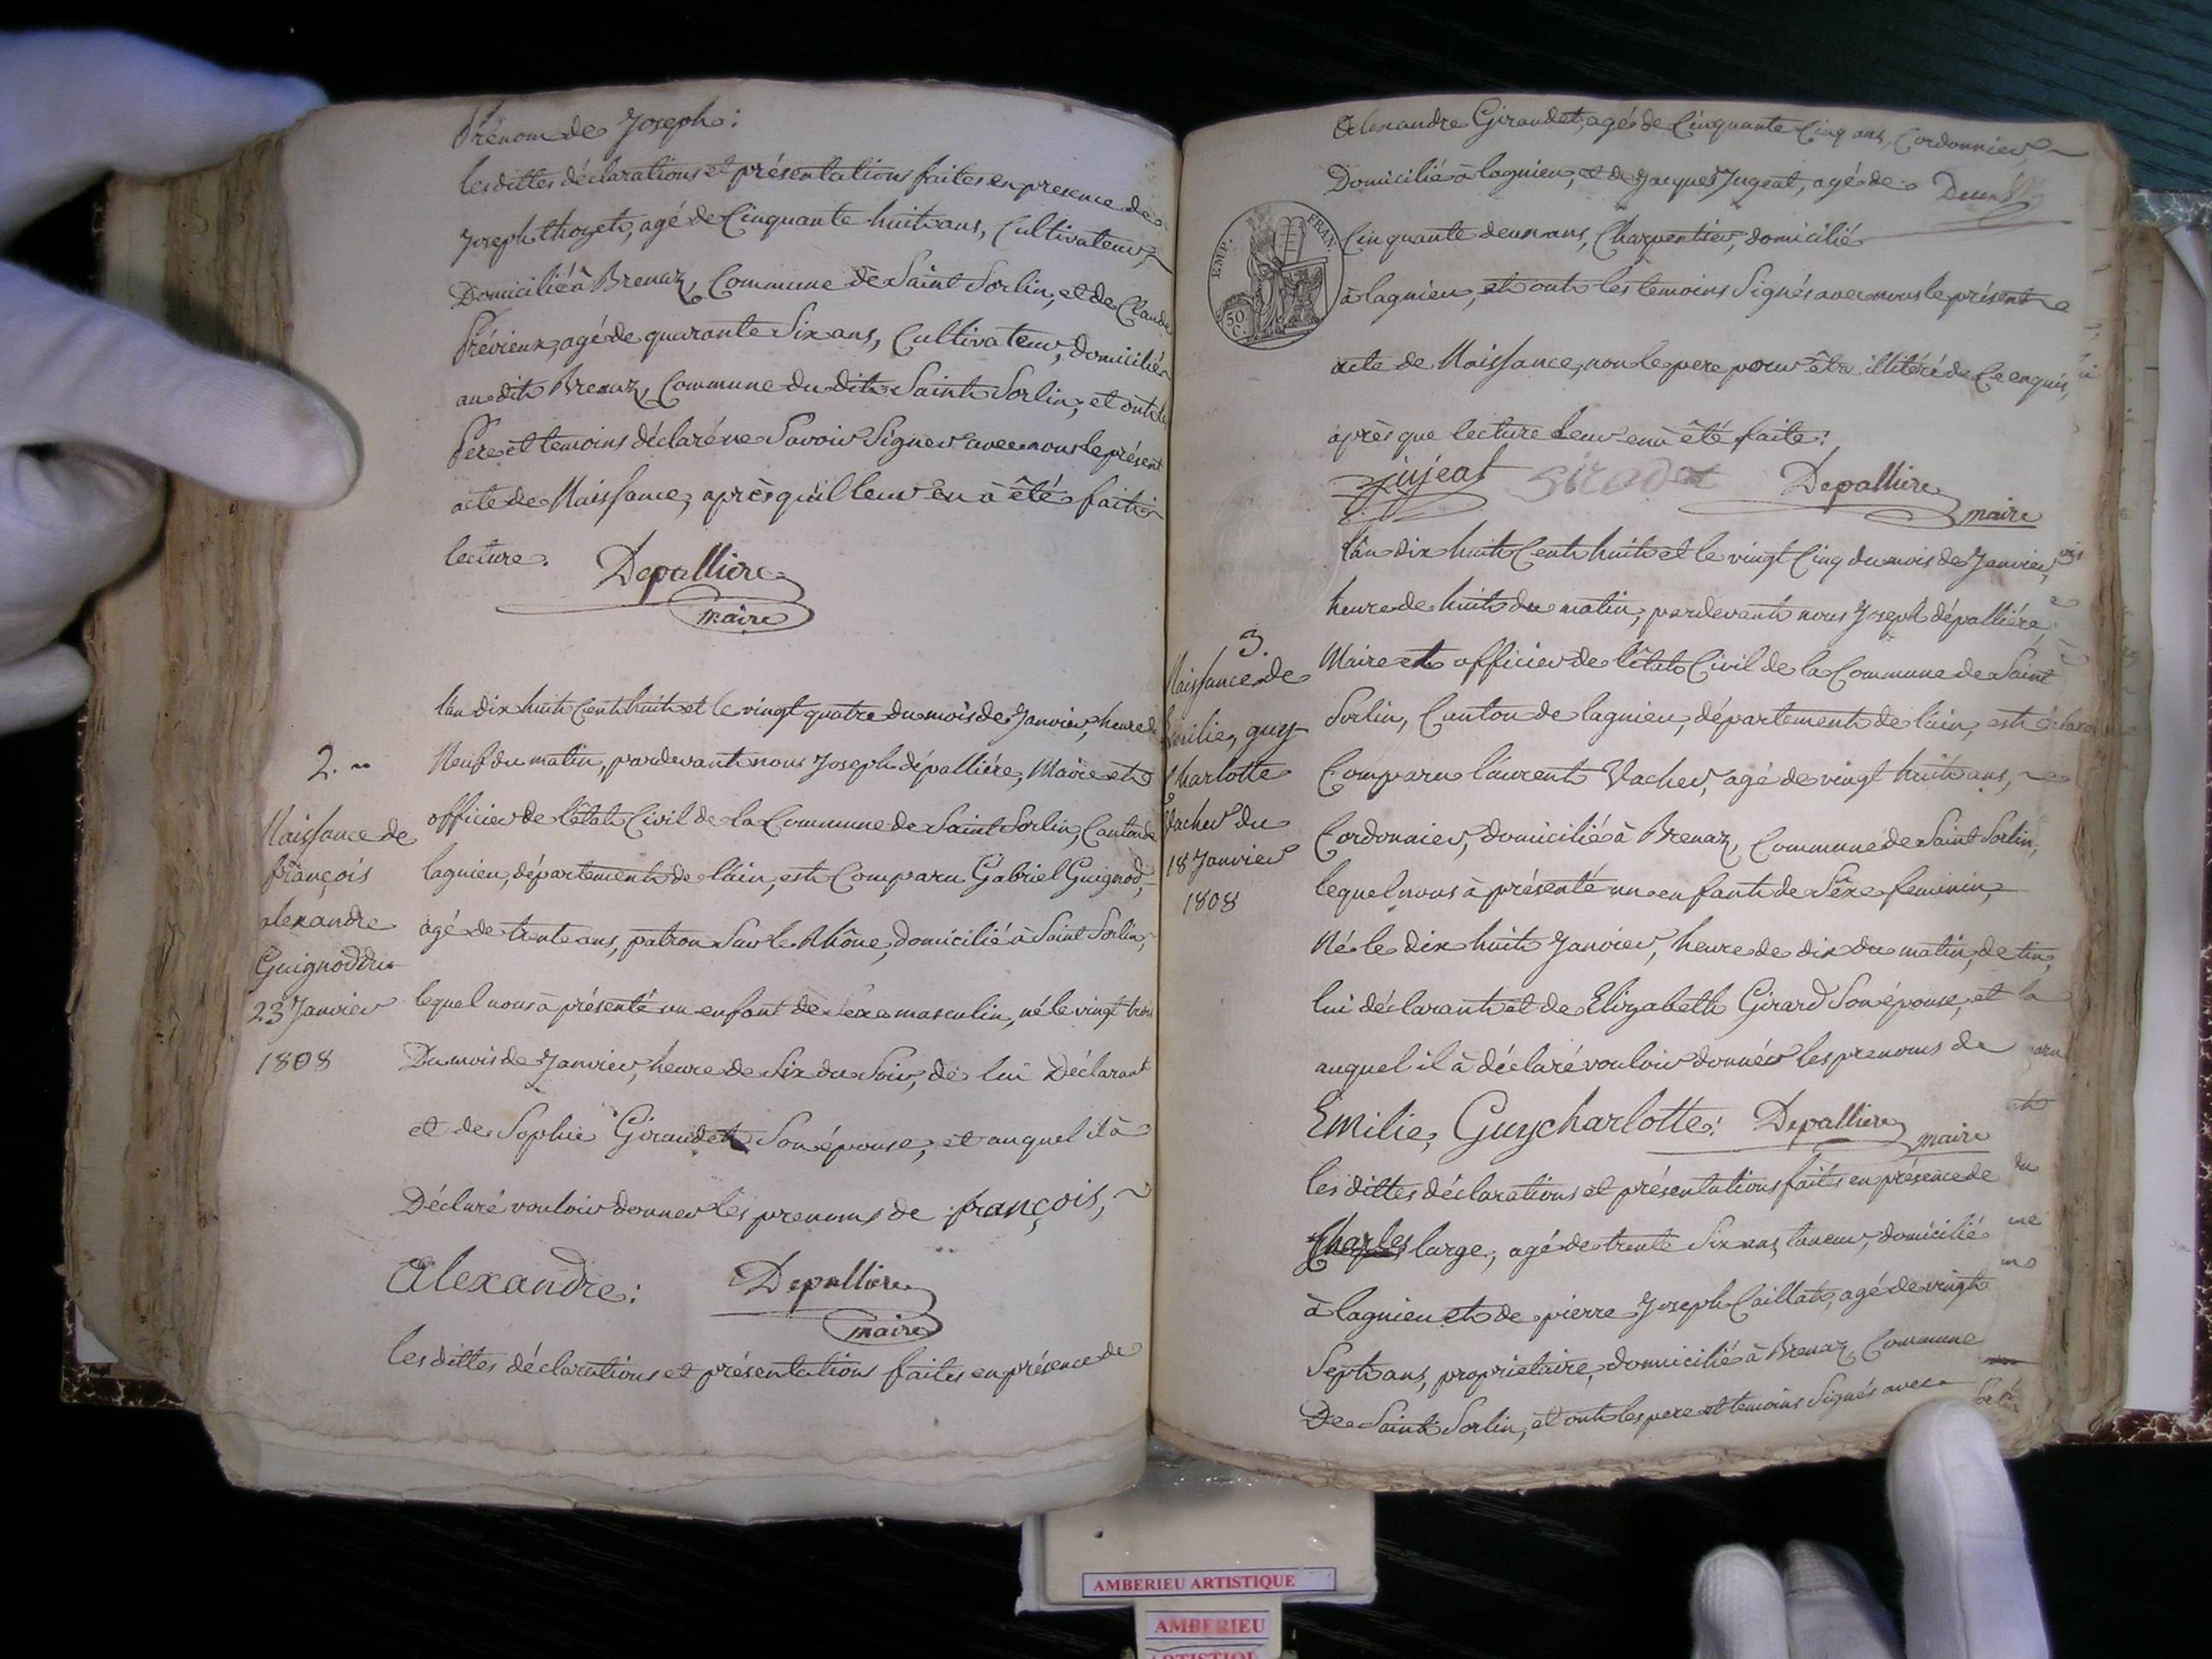 Prénom de Joseph:
les dittes déclarations et présentations faites en presence de
Joseph thoyet, agé de Cinquante huit ans, Cultivateur,
Domicilié à Brenaz, Commune de Saint Sorlin, et de Claude
Prévieux, agé de quarante Six ans, Cultivateur, domicilié
au dit Brenaz, Commune du dit Saint Sorlin, et ont le
Pere et temoins déclaré ne Savoir Signer avec nous le présent
acte de Naissance, après qu'il leur en à été fait
lecture. Depalliere
maire
2.
Naissance de
françois
alexandre
Guignod du
23 Janvier
1808
l'an dix huit Cent huit et le vingt quatre du mois de Janvier, heure de
Neuf du matin, pardevant nous Joseph dépalliére, Maire et
officier de l'état Civil de la Commune de Saint Sorlin, Canton de
lagnieu, département de l'ain, est Comparu Gabriel Guignod,
agé de trente ans, patron Sur le Rhône, domicilié à Saint Sorlin,
lequel nous à présenté un enfant de Sexe masculin, né le vingt trois
Du mois de Janvier, heure de Six du Soir, de lui Déclarant
et de Sophie Giraudet Son épouse, et auquel il à
Déclaré vouloir donner les prenoms de françois,
Alexandre: Depalliere
maire
les dittes déclarations et présentations faites en présence de
Alexandre Giraudet, agé de Cinquante Cinq ans, Cordonnier
Domicilié à lagnieu, et de Jacques Jugeat, agé de
Cinquante deux ans, Charpentier, domicilié
à lagnieu, et ont les temoins Signés avec nous le présent
acte de Naissance, non le pere pour être illitéré de Ce enquis,
après que lecture leur en à été faite:
EMP. FRAN.
50 C.
jujeat Girodet Depalliere
maire
3.
Naissance de
Emilie, guy
Charlotte
Vacher du
18 Janvier
1808
l'an dix huit Cent huit et le vingt Cinq du mois de Janvier,
heure de huit du matin, pardevant nous Joseph dépalliére,
Maire et officier de l'état Civil de la Commune de Saint
Sorlin, Canton de lagnieu, département de l'ain, est
Comparu laurent Vacher, agé de vingt huit ans,
Cordonnier, domicilié à Brenaz, Commune de Saint Sorlin,
lequel nous à présenté un enfant de Sèxe feminin,
Né le dix huit Janvier, heure de dix du matin, de
lui déclarant et de Elizabeth Girard Son épouse, et
auquel il à déclaré vouloir donner les prenoms de
Emilie, Guy charlotte: Depalliere
maire
les dittes déclarations et présentations faites en présence de
Charles large, agé de trente Six ans, taneur, domicilié
à lagnieu et de pierre Joseph Caillat, agé de vingt
Sept ans, proprietaire, domicilié à Brenaz, Commune
De Saint Sorlin, et ont les pere et temoins Signés avec
AMBERIEU ARTISTIQUE
AMBERIEU
ARTISTIQUE